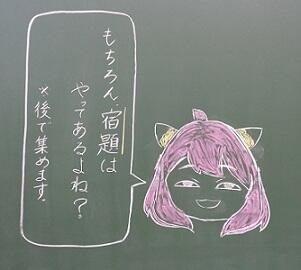 もちろん、宿題は
やってあるよね？
※後で集めます。